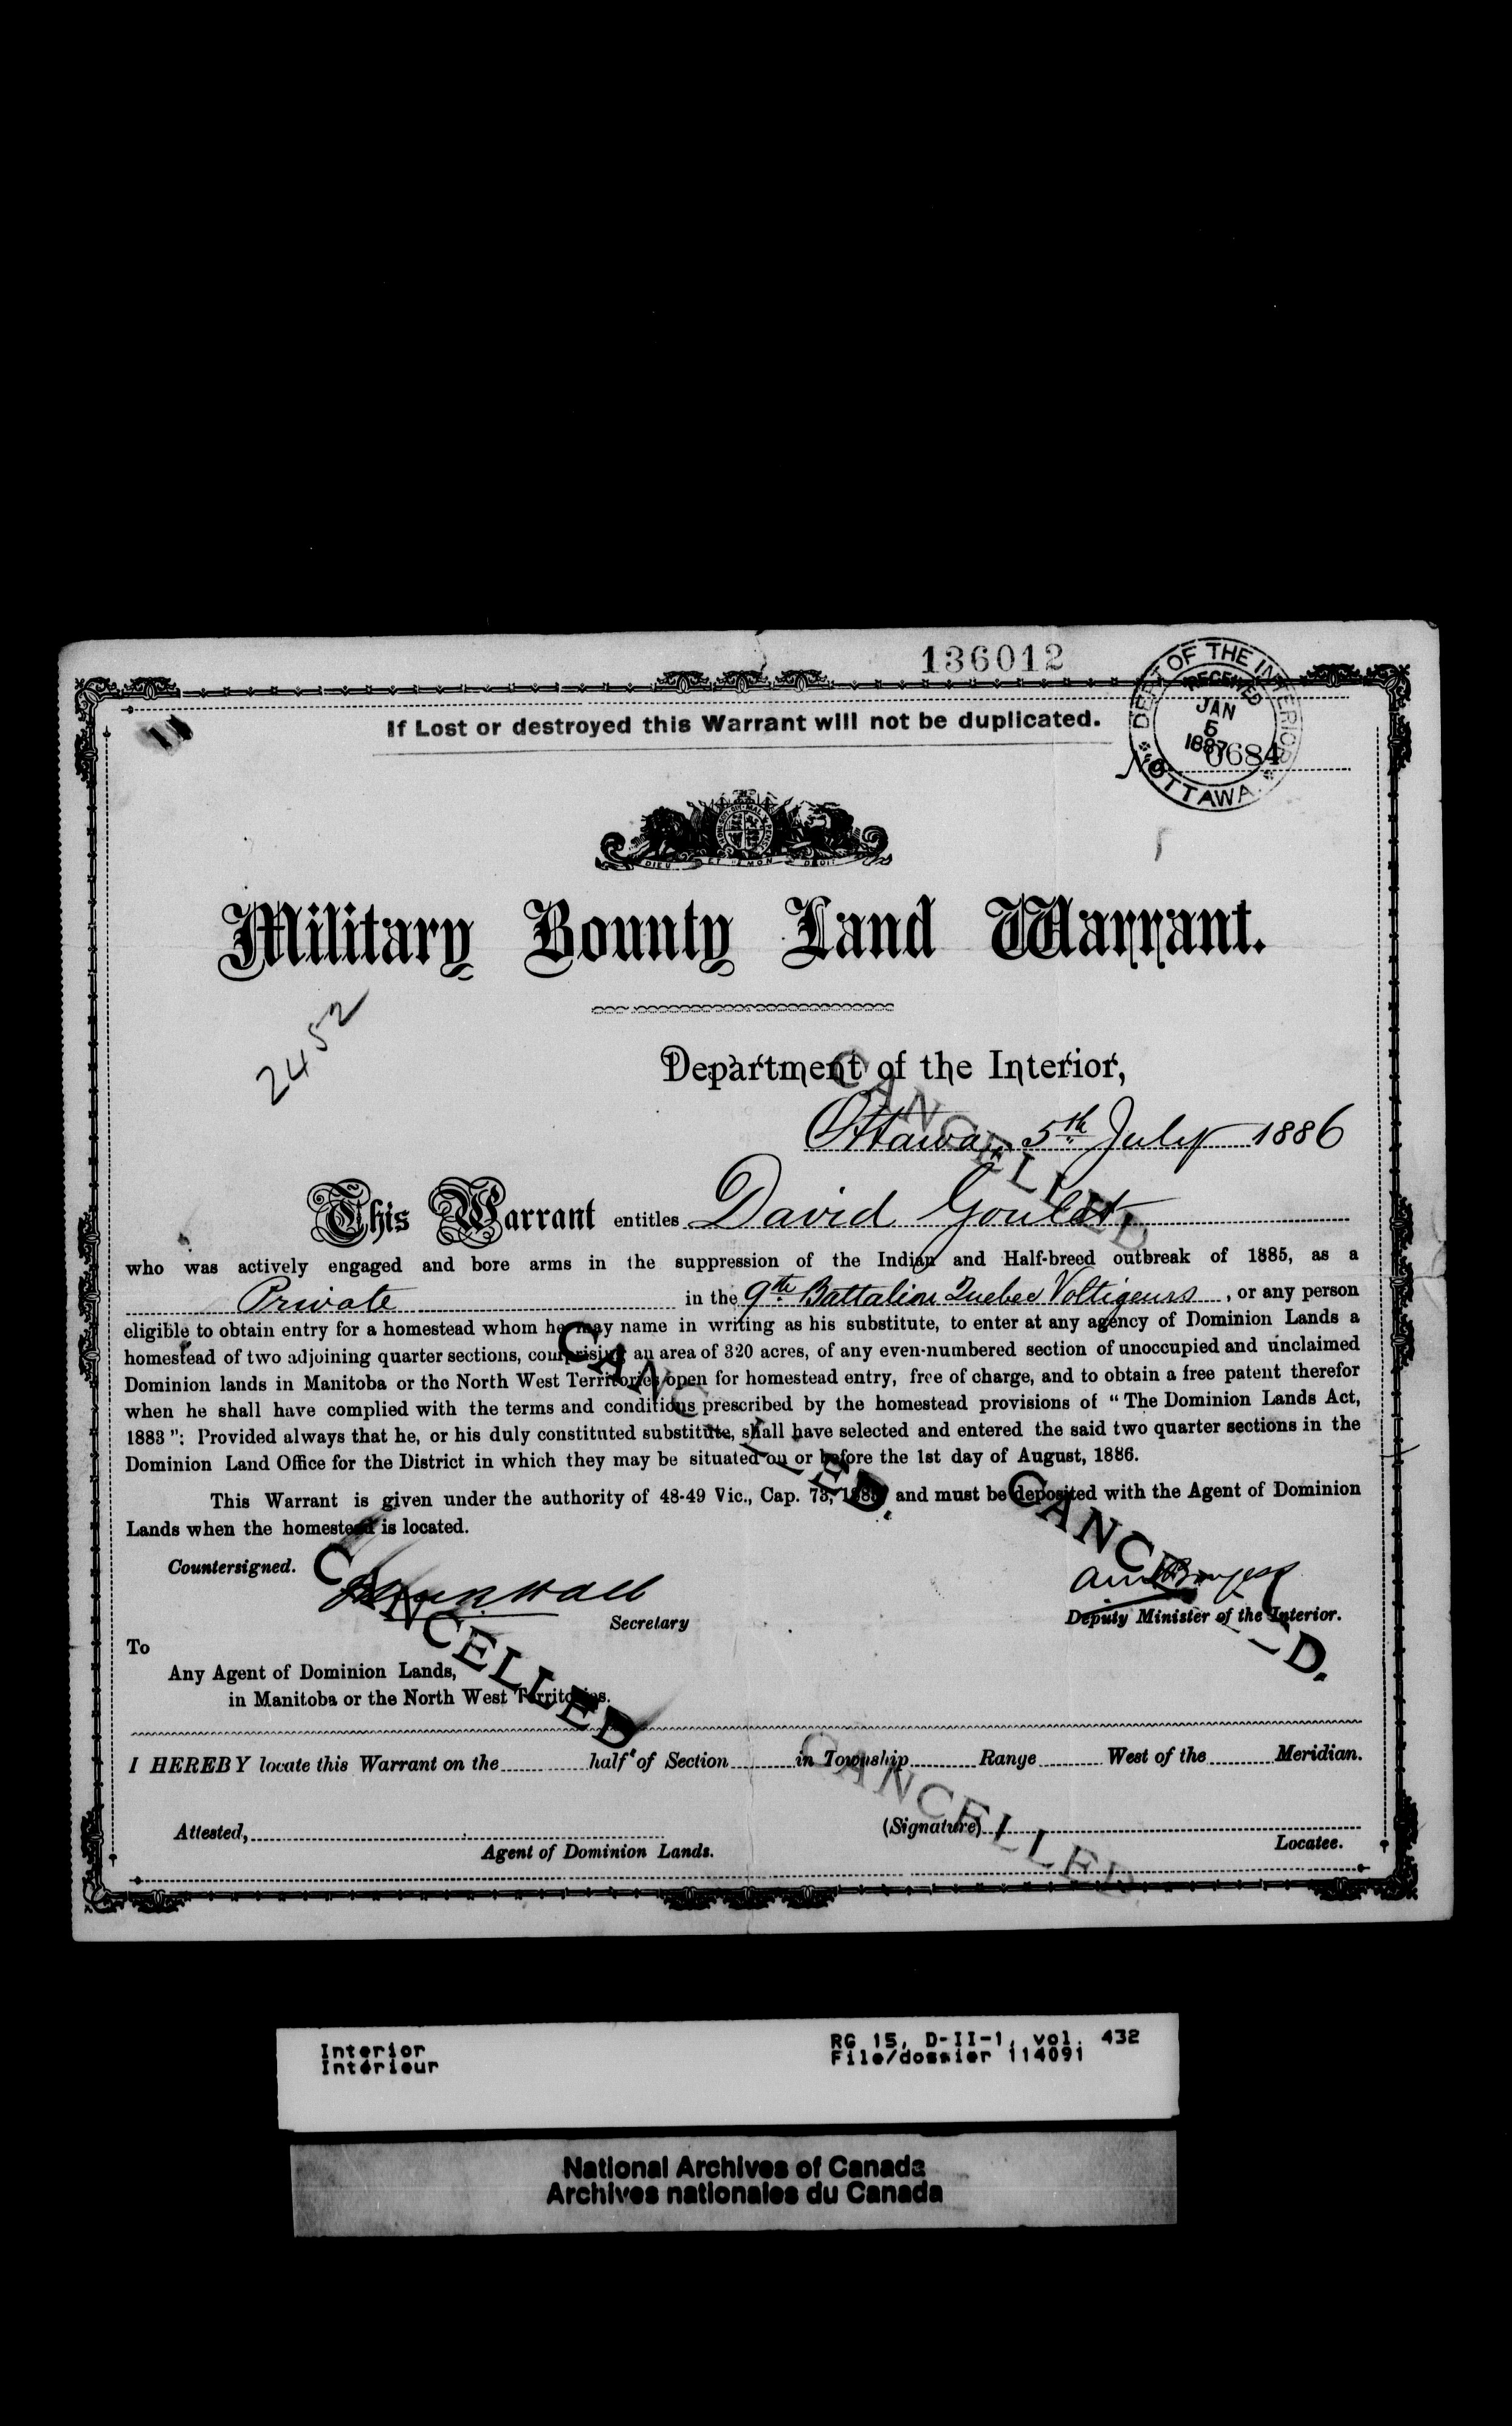 136012
DEPT OF THE INTERIOR
RECEIVED
JAN
5
1887
OTTAWA.
If Lost or destroyed this Warrant will not be duplicated.
No 0684
DIEU ET MON DROIT
Military Bounty Land Warrant.
2452
Department of the Interior,
Ottawa, 5th July 1886
This Warrant entitles David Gouldt
who was actively engaged and bore arms in the suppression of the Indian and Half-breed outbreak of 1885, as a
Private in the 9th Battalion Quebec Voltigeurs, or any person
eligible to obtain entry for a homestead whom he may name in writing as his substitute, to enter at any agency of Dominion Lands a
homestead of two adjoining quarter sections, comprising an area of 320 acres, of any even-numbered section of unoccupied and unclaimed
Dominion lands in Manitoba or the North West Territories open for homestead entry, free of charge, and to obtain a free patent therefor
when he shall have complied with the terms and conditions prescribed by the homestead provisions of "The Dominion Lands Act,
1883": Provided always that he, or his duly constituted substitute, shall have selected and entered the said two quarter sections in the
Dominion Land Office for the District in which they may be situated on or before the 1st day of August, 1886.
This Warrant is given under the authority of 48-49 Vic., Cap. 73, 1885, and must be deposited with the Agent of Dominion
Lands when the homestead is located.
CANCELLED
CANCELLED.
CANCELLED.
CANCELLED
CANCELLED
Countersigned.
Hall
Secretary
Burgess
Deputy Minister of the Interior.
To
Any Agent of Dominion Lands,
in Manitoba or the North West Territories.
I HEREBY locate this Warrant on the half of Section in Township Range West of the Meridian.
Attested,
(Signature)
Agent of Dominion Lands.
Locatee.
Interior
Intérieur
RG 15, D-II-1, vol. 432
File/dossier 114091
National Archives of Canada
Archives nationales du Canada